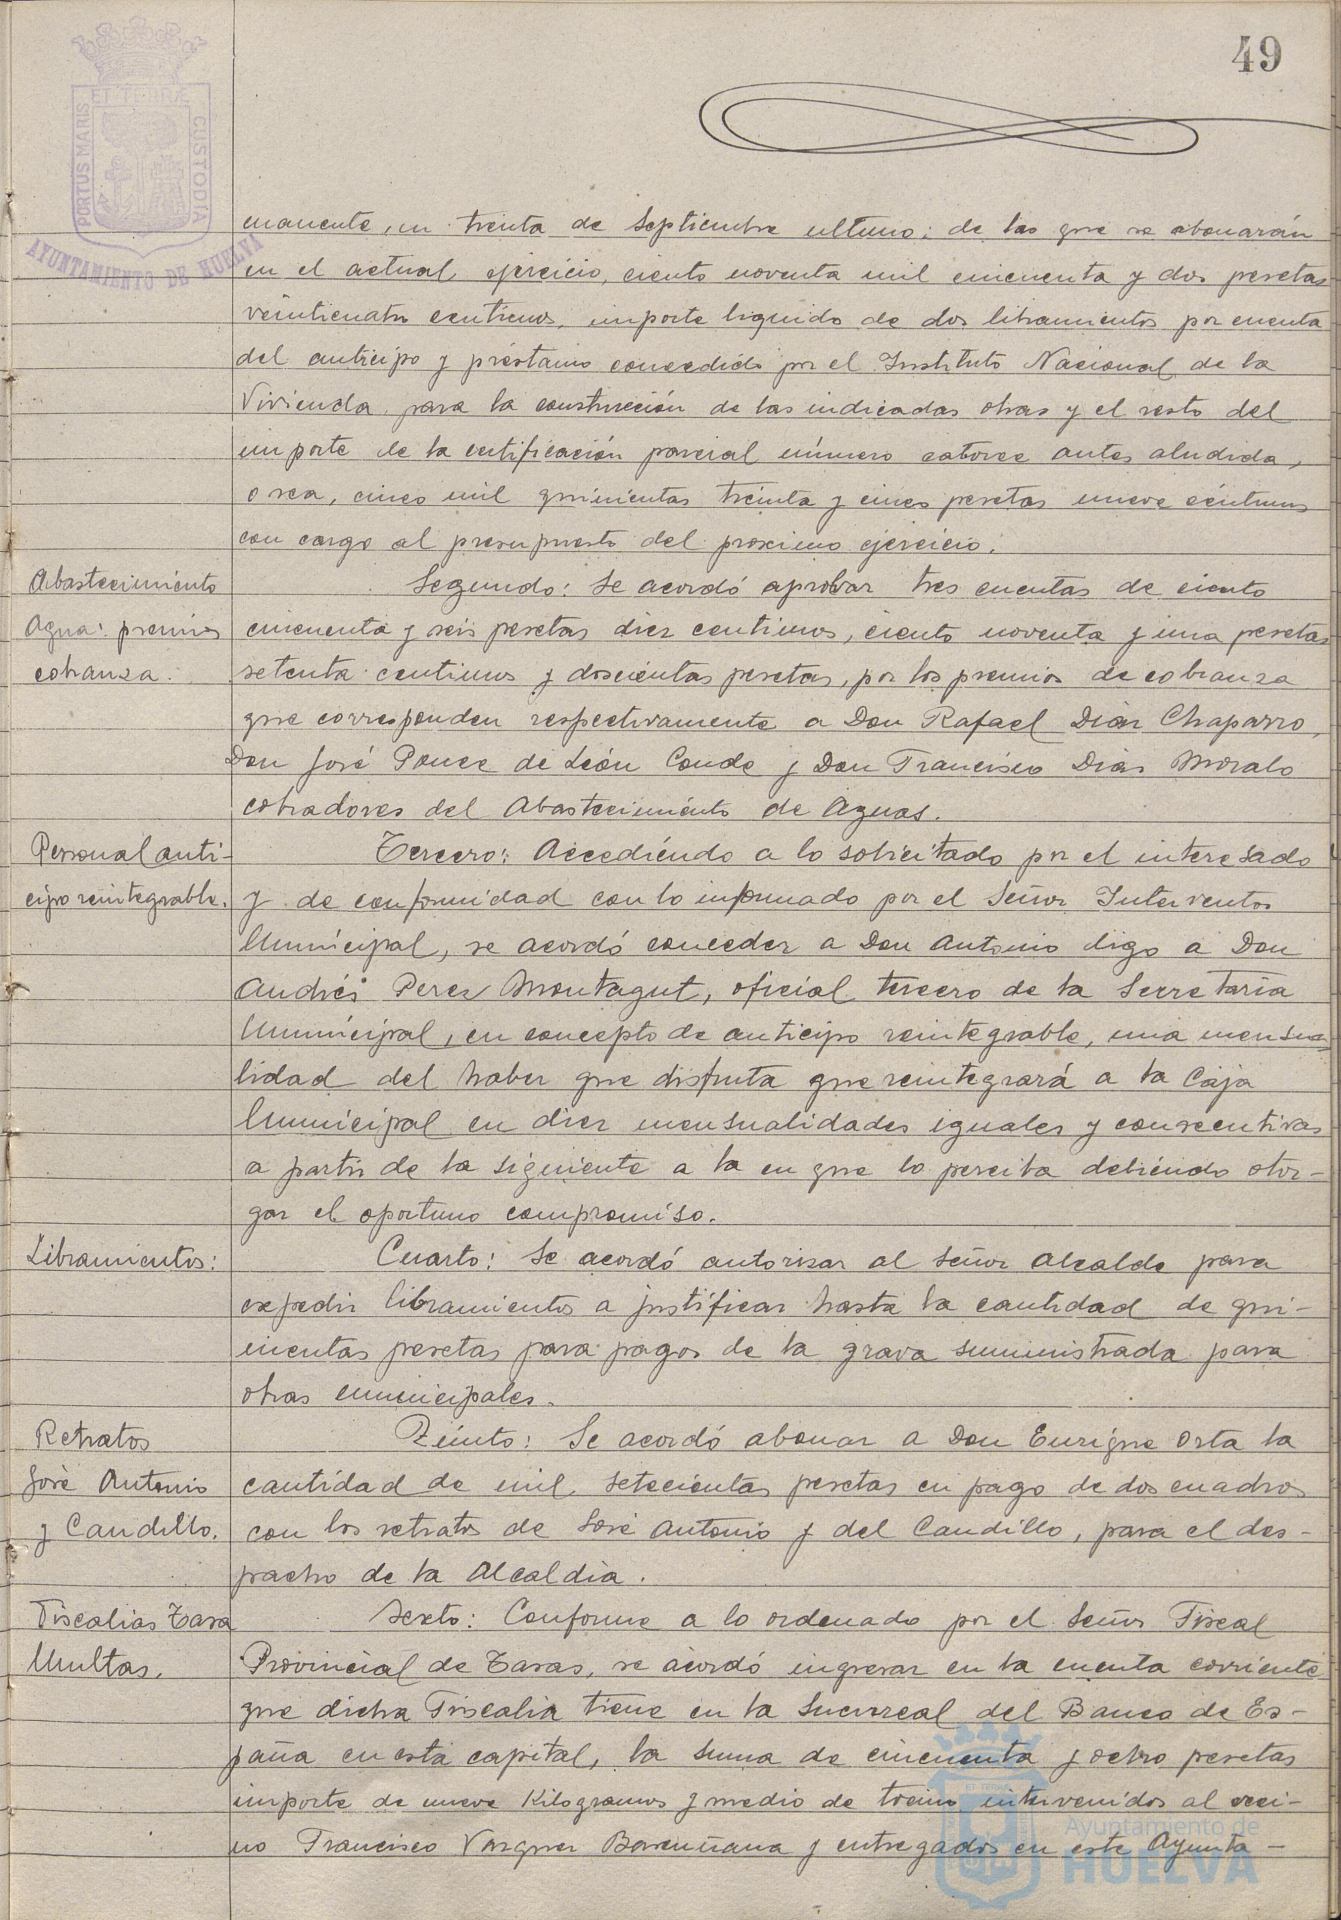 49
PORTUS MARIS ET TERRÆ CUSTODIA
AYUNTAMIENTO DE HUELVA
manente, en treinta de Septiembre ultimo; de las que se abonarán
en el actual ejercicio, ciento noventa mil cincuenta y dos pesetas
veinticuatro centimos, importe liquido de dos libramientos por cuenta
del anticipo y préstamo concedido por el Instituto Nacional de la
Vivienda para la construcción de las indicadas obras y el resto del
importe de la certificación parcial número catorce antes aludida,
o sea, cinco mil quinientas treinta y cinco pesetas nueve céntimos
con cargo al presupuesto del proximo ejercicio.
Abastecimiento
Agua: premios
cobranza.
Segundo: Se acordó aprobar tres cuentas de ciento
cincuenta y seis pesetas diez centimos, ciento noventa y una pesetas
setenta centimos y doscientas pesetas, por los premios de cobranza
que corresponden respectivamente a Don Rafael Diaz Chaparro,
Don José Ponce de León Conde y Don Francisco Dias Morals
cobradores del Abastecimiento de Aguas.
Personal anti-
cipo reintegrable.
Tercero: Accediendo a lo solicitado por el interesado
y de conformidad con lo informado por el Señor Interventor
Municipal, se acordó conceder a Don Antonio digo a Don
Andrés Perez Montagut, oficial tercero de la Secretaria
Municipal, en concepto de anticipo reintegrable, una mensua
lidad del haber que disfruta que reintegrará a la Caja
Municipal en diez mensualidades iguales y consecutivas
a partir de la siguiente a la en que lo perciba debiendo otor-
gar el oportuno compromiso.
Libramientos:
Cuarto: Se acordó autorizar al Señor Alcalde para
expedir libramientos a justificar hasta la cantidad de qui-
nientas pesetas para pagos de la grava suministrada para
obras municipales.
Retratos
José Antonio
y Caudillo.
Quinto: Se acordó abonar a Don Enrique Orta la
cantidad de mil setecientas pesetas en pago de dos cuadros
con los retratos de José Antonio y del Caudillo, para el des-
pacho de la Alcaldia.
Fiscalias Tasa
Multas.
Sexto: Conforme a lo ordenado por el Señor Fiscal
Provincial de Tasas, se acordó ingresar en la cuenta corriente
que dicha Fiscalia tiene en la Sucursal del Banco de Es-
paña en esta capital, la suma de cincuenta y ocho pesetas
importe de nueve Kilogramos y medio de tocino intervenidos al veci-
no Francisco Vazquez y entregados en este Ayunta-
Ayuntamiento de
HUELVA